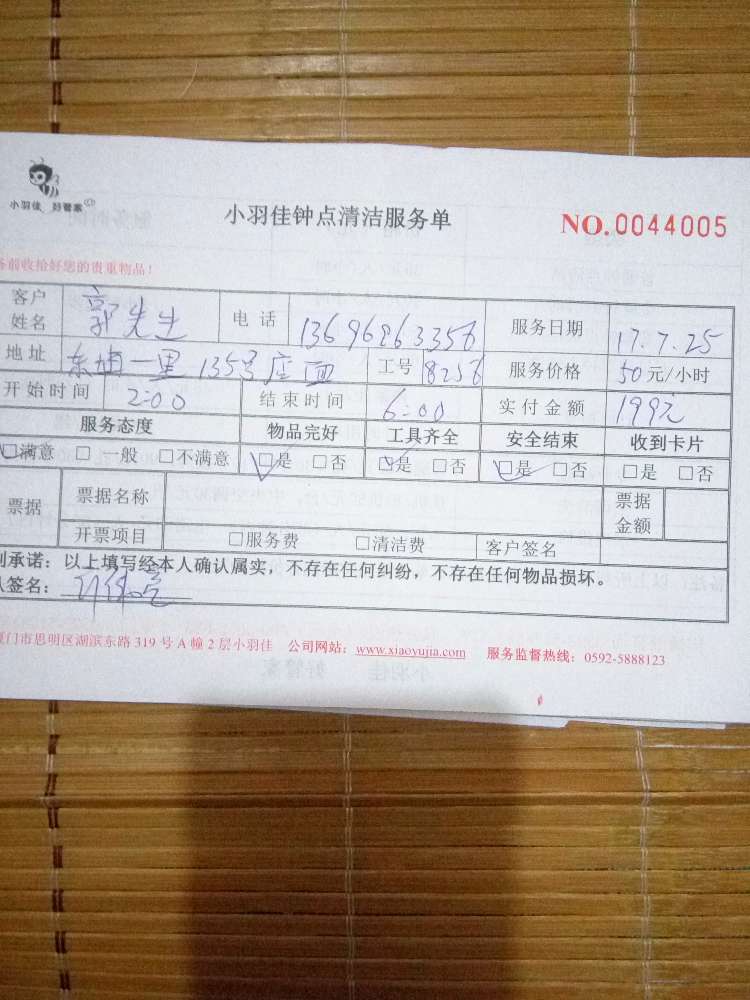 小羽佳 好管家
小羽佳钟点清洁服务单
NO.0044005
务前收拾好您的贵重物品！
客户姓名 郭先生 电话 13696963356 服务日期 17.7.25
地址 东埔一里135号店面 工号 8256 服务价格 50元/小时
开始时间 2:00 结束时间 6:00 实付金额 199元
服务态度 物品完好 工具齐全 安全结束 收到卡片
☑满意 □一般 □不满意 ☑是 □否 ☑是 □否 ☑是 □否 □是 □否
票据 票据名称 票据金额
开票项目 □服务费 □清洁费 客户签名
承诺：以上填写经本人确认属实，不存在任何纠纷，不存在任何物品损坏。
签名：
门市思明区湖滨东路319号A幢2层小羽佳 公司网站：www.xiaoyujia.com 服务监督热线：0592-5888123